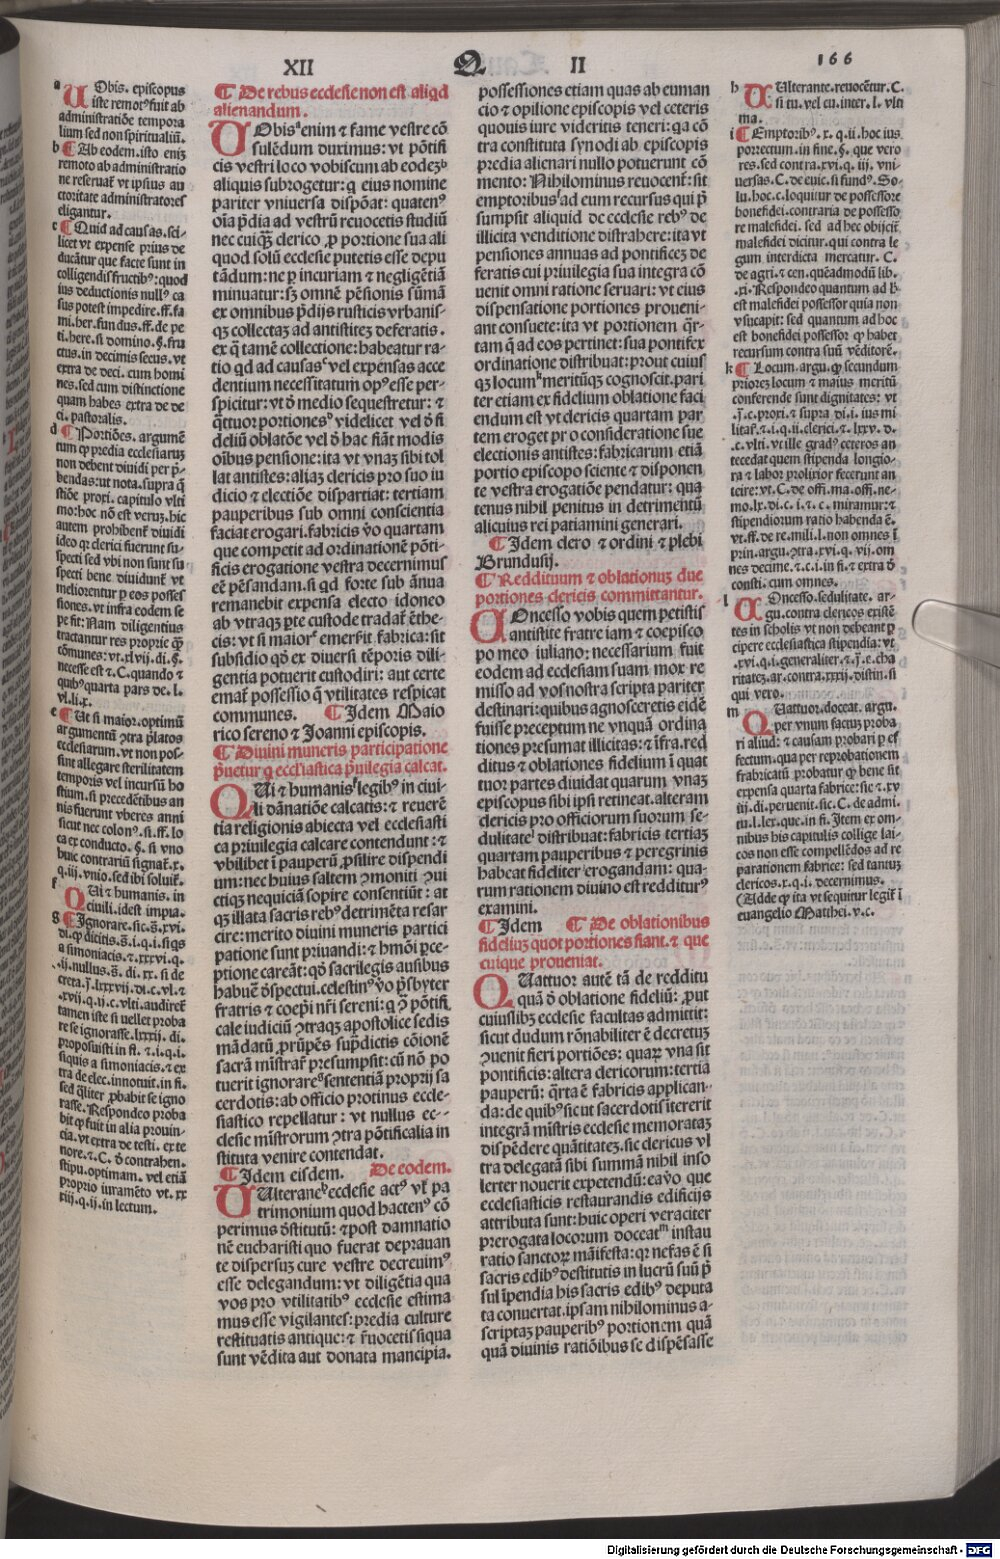 XII Q II 166
a Uobis. episcopus
iste remotꝰ fuit ab
administratiōe tempora
lium sed non spirituliū.
b ¶ Ab eodem. isto eniꝫ
remoto ab administratio
ne reseruat̄ vt ipsius au
ctoritate administratores
eligantur.
c ¶ Quid ad causas. sci-
licet vt expense prius de
ducātur que facte sunt in
colligendis fructibꝰ: quod
ius deductionis nullꝰ ca
sus potest impedire. ff. fa
mi. her. fundus. ff. de pe
ti. here. si domino. §. fru
ctus. in decimis secus. vt
extra de deci. cum homi
nes. sed cum distinctione
quam habes extra de de
ci. pastoralis.
d ¶ Portiōes. argumē
tum ꝙ predia ecclesiaruꝫ
non debent diuidi per p̄-
bendas: ut nota. supra q̄
stiōe proxi. capitulo vlti
mo: hoc nō est veruꝫ. hic
autem prohibent̄ diuidi
ideo qꝛ clerici fuerunt su-
specti sed vbi non sunt su
specti bene diuidunt̄ vt
meliorentur ꝑ eos posses
siones. vt infra eodem se
pe fit: Nam diligentius
tractantur res proprie ꝙ̄
cōmunes: vt. xlvij. di. §.
necesse est ⁊. C. quando ⁊
quibꝰ quarta pars de. l.
vl. li. x.
e ¶ Ut si maior. optimū
argumentū ↄtra p̄latos
ecclesiarum. vt non pos-
sint allegare sterilitatem
temporis vel incursū ho
stium. si precedētibus an
nis fuerunt vberes anni
sicut nec colonꝰ. si. ff. lo
ca ex conducto. §. si vno
huic contrariū signat̄. x.
q. iij. vnio. sed ibi soluit̄.
f Qui ⁊ humanis. in
ciuili. idest impia.
g ¶ Ignorare. sic. s̄. xvi.
di. ꝙ dicitis. s̄. i. q. i. si qs
a simoniacis. ⁊. xxxvi. q.
.ij. nullus. s̄. di. xx. si de
creta. j. lxxvij. di. c. vl. ⁊
.xvij. q. ij. c. vlti. audiret̄
tamen iste si vellet proba
re se ignorasse. lxxij. di.
proposuisti in fi. ⁊. i. q. i.
siquis a simoniacis. ⁊ ex
tra de elec. innotuit. in fi.
sed qliter ꝓbabit se igno
rasse. Respondeo proba
bit ꝙ fuit in alia prouin-
cia. vt extra de testi. ex te
nore. ⁊. C. ō contrahen.
stipu. optimam. vel etiā
proprio iuramēto vt. xx
xij. q. ij. in lectum.
¶ De rebus ecclesie non est aliqd
alienandum.
UObisᵃ enim ⁊ fame vestre cō
sulēdum duximus: vt pōtifi
cis vestri loco vobiscum ab eodeꝫᵇ
aliquis subrogetur: q̄ eius nomine
pariter vniuersa dispōat: quatenꝰ
oīa p̄dia ad vestrū reuocetis studiū
nec cuiqꝫ clerico ꝓ portione sua ali
quod solū ecclesie putetis esse depu
tādum: ne ꝑ incuriam ⁊ negligētiā
minuatur: sꝫ omnē pēsionis sūmā
ex omnibus p̄dijs rusticis vrbanis-
qꝫ collectaꝫ ad antistiteꝫ deferatis.
ex q̄ tamē collectione: habeatur ra-
tio qd ad causasᶜ vel expensas acce
dentium necessitatum opꝰ esse per-
spicitur: vt ō medio sequestretur: ⁊
q̄ttuor portionesᵈ videlicet vel ō fi
deliū oblatōe vel ō hac fiāt modis
oībus pensione: ita vt vnaꝫ sibi tol
lat antistes: aliaꝫ clericis pro suo iu
dicio ⁊ electiōe dispartiat: tertiam
pauperibus sub omni conscientia
faciat erogari. fabricis v̄o quartam
que competit ad ordinationē pōti-
ficis erogatione vestra decernimus
eē pēsandam. si qd forte sub ānua
remanebit expensa electo idoneo
ab vtraqꝫ pte custode tradat̄ ēthe-
cis: vt si maiorᵉ emerſit fabrica: sit
subsidio qd ex diuersi tēporis dili-
gentia potuerit custodiri: aut certe
emat̄ possessio q̄ vtilitates respicat
communes. ¶ Idem Maio
rico sereno ⁊ Joanni episcopis.
¶ Diuini muneris participatione
p̄uetur q ecclīastica p̄uilegia calcat.
QUi ⁊ humanisᶠ legibꝰ in ciui-
li dānatiōe calcatis: ⁊ reuerē
tia religionis abiecta vel ecclesiasti
ca priuilegia calcare contendunt: ⁊
vbilibet ī pauperū ꝓsilire dispendi
um: nec huius saltem ↄmoniti ↄui
ctiqꝫ nequiciā sopire consentiūt: at
qꝫ illata sacris rebꝰ detrimēta resar
cire: merito diuini muneris partici
patione sunt priuandi: ⁊ hmōi ꝑce-
ptione careāt: qō sacrilegis ausibus
habuē ōspectui. celestinꝰ v̄o p̄sbyter
fratris ⁊ coepī nr̄i sereni: q ↄ pōtifi
cale iudiciū ↄtraqꝫ apostolice sedis
mādatū ꝓrūpēs sup̄dictis cōionē
sacrā mistrat̄ presumpsit: cū nō po
tuerit ignorareᵍ sententiā proprij sa
cerdotis: ab officio protinus eccle-
siastico repellatur: vt nullus ec--
clesie mistrorum ↄtra pōtificalia in
stituta venire contendat.
¶ Idem eisdem. De eodem.
UUlteraneʰ ecclesie actꝰ vl̄ pa
trimonium quod hactenꝰ cō
perimus ōstitutū: ⁊ post damnatio
nē eucharisti quo fuerat deprauan
te dispersuꝫ cure vestre decreuimꝰ
esse delegandum: vt diligētia qua
vos pro vtilitatibꝰ ecclesie estima
mus esse vigilantes: predia culture
restituatis antique: ⁊ r̄uocetis siqua
sunt vēdita aut donata mancipia.
possessiones etiam quas ab euman
cio ⁊ opilione episcopis vel ceteris
quouis iure videritis teneri: qa cō
tra constituta synodi ab episcopis
predia alienari nullo potuerunt cō
mento: Nihilominus reuocent̄: sit
emptoribusⁱ ad eum recursus qui p̄
sumpsit aliquid de ecclesie rebꝰ de
illicita venditione distrahere: ita vt
pensiones annuas ad pontificeꝫ de
feratis cui priuilegia sua integra cō
uenit omni ratione seruari: vt eius
dispensatione portiones proueni-
ant consuete: ita vt portionem q̄r-
tam q̄ ad eos pertinet: sua pontifex
ordinatione distribuat: prout cuius
qꝫ locumᵏ meritūqꝫ cognoscit. pari
ter etiam ex fidelium oblatione faci
endum est vt clericis quartam par
tem eroget pro consideratione sue
electionis antistes: fabricarum etiā
portio episcopo sciente ⁊ disponen
te vestra erogatiōe pendatur: qua
tenus nihil penitus in detrimentū
alicuius rei patiamini generari.
¶ Idem clero ⁊ ordini ⁊ plebi
Brundusij.
¶ Reddituum ⁊ oblationuꝫ due
portiones clericis committantur.
COncesso vobis quem petistis
antistite fratre iam ⁊ coepisco
po meo iuliano: necessarium fuit
eodem ad ecclesiam suam mox re
misso ad vos nostra scripta pariter
destinari: quibus agnosceretis eidē
fuisse preceptum ne vnquā ordina
tiones presumat illicitas: ⁊ īfra. red
ditus ⁊ oblationes fidelium ī quat
tuor partes diuidat quarum vnaꝫ
episcopus sibi ipsi retineat. alteram
clericis pro officiorum suorum se-
dulitateˡ distribuat: fabricis tertiaꝫ
quartam pauperibus ⁊ peregrinis
habeat fideliter erogandam: qua-
rum rationem diuino est redditurꝰ
examini.
¶ Idem ¶ De oblationibus
fideliuꝫ quot portiones fiant. ⁊ que
cuique proueniat.
QUattuor autē tā de redditu
quā ō oblatione fideliū: ꝓut
cuiuslibꝫ ecclesie facultas admittit:
sicut dudum rōnabiliter ē decretuꝫ
ↄuenit fieri portiōes: quaꝝ vna sit
pontificis: altera clericorum: tertia
pauperū: q̄rta ē fabricis applican-
da: de quibꝰ sicut sacerdotis ītererit
integrā mīstris ecclesie memorataꝫ
dispēdere quātitateꝫ. sic clericus vl̄
tra delegatā sibi summā nihil inso
lerter nouerit expetendū: ea v̄o que
ecclesiasticis restaurandis edificijs
attributa sunt: huic operi veraciter
prerogata locorum doceatᵐ instau
ratio sanctoꝝ māifesta: qꝛ nefas ē si
sacris edibꝰ destitutis in lucrū suū p̄
sul īpendia his sacris edibꝰ deputa
ta conuertat. ipsam nihilominus a-
scriptaꝫ pauperibꝰ portionem quā
quā diuinis ratiōibus se dispēsasse
h UUlterante. reuocētur. C.
si tu. vel cu. inter. l. vlti
ma.
i ¶ Emptoribꝰ. x. q. ii. hoc ius
porrectum. in fine. §. que vero
res. sed contra. xvi. q. iij. vni-
uersas. C. de euic. si fundꝰ. So-
lu. hoc. c. loquitur de possessore
bonefidei. contraria de possesso
re malefidei. sed ad hec obijcit̄
malefidei dicitur. qui contra le
gum interdicta mercatur. C.
de agri. ⁊ cen. quēadmodū lib.
.xi. Respondeo quantum ad h̄
est malefidei possessor quia non
vsucapit: sed quantum ad hoc
est bonefidei possessor ꝙ habet
recursum contra suū vēditorē.
k ¶ Locum. argu. ꝙ secundum
priorez locum ⁊ maius meritū
conferende sunt dignitates: vt
.j. c. proxi. ⁊ supra di. i. ius mi
litar̄. ⁊. i. q. ii. clerici. ⁊. lxxv. d-
.c. vlti. vt ille gradꝰ ceteros an
tecedat quem stipenda longio-
ra ⁊ labor prolixior fecerunt an
teire: vt. C. de offi. ma. offi. ne-
mo. lx. di. c. i. ⁊. c. miramur: ⁊
stipendiorum ratio habenda ē.
vt. ff. de re. mili. l. non omnes ī
prin. argu. ↄtra. xvi. q. vij. om
nes decime. ⁊. c. i. in fi. ⁊ extra ō
consti. cum omnes.
l COncesso. sedulitate. ar-
gu. contra clericos existē
tes in scholis vt non debeant ꝑ
cipere ecclesiastica stipendia: vt
.xvi. q. i. generaliter. ⁊. j. e. cha
ritatez. ar. contra. xxij. distin. si
qui vero.
m QUattuor. doceat. argu.
per vnum factuꝫ proba
ri aliud: ⁊ causam probari ꝑ ef
fectum. qua per reprobationem
fabricatū probatur ꝙ bene sit
expensa quarta fabrice: sic ⁊. xv
iij. di. peruenit. sic. C. de admi.
tu. l. lex. que. in fi. Item ex om-
nibus his capitulis collige lai-
cos non esse compellēdos ad re
parationem fabrice: sed tantuꝫ
clericos. x. q. i. decernimus.
(Adde ꝙ ita vt sequitur legit̄ ī
euangelio Matthei. v. c.
Digitalisierung gefördert durch die Deutsche Forschungsgemeinschaft - DFG